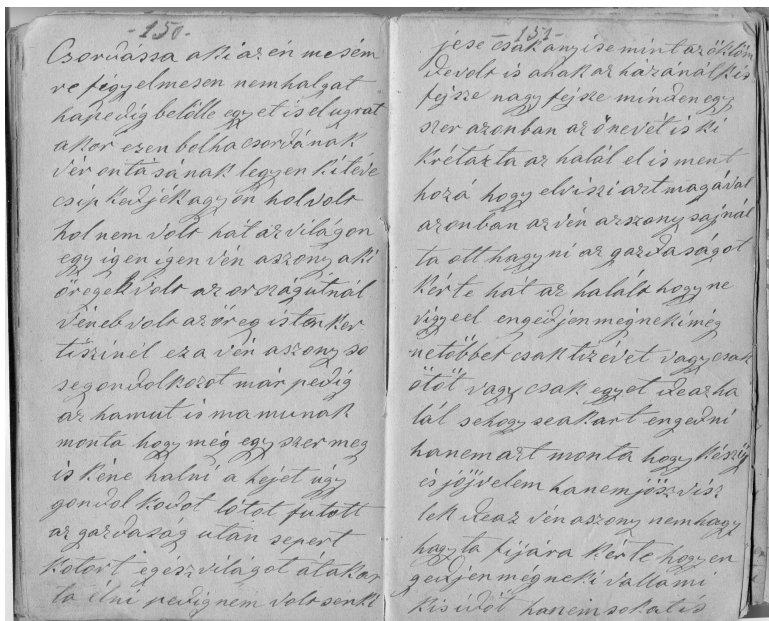 -150-
Csordássa aki az én mesém
re figyelmesen nem halgat
ha pedig belölle egyet is elugrat
akor ezen bolha csordának
vér ontásának legyen kitéve
csipkedjék agyon hol volt
hol nem volt hát az világon
egy igen igen vén aszony aki
öregek volt az országútnál
véneb volt az öreg isten ker
tiszinél ez a vén aszony so
se gondolkozot már pedig
az hamut is mamunak
monta hogy még egyszer meg
is kéne halni a hejet úgy
gondolkodot lótot futott
az gazdaság után sepert
kotort egesz világot át akar
ta élni pedig nem volt senki
-151-
jese csak anyi se mint az öklöm
de volt is anak az házánál kis
fejsze nagy fejsze minden egy
szer azonban az ö nevét is ki
krétazta az halál el is ment
hozá hogy elviszi azt magával
azonban az vén aszszony sajnál
ta ott hagyni az gazdaságot
kérte hát az halált hogy ne
vigye el engedjen még neki még
ne többet csak tiz évet vagy csak
ötöt vagy csak egyet de az ha
lál sehogy se akart engedni
hanem azt monta hogy készüj
és jöjj velem hanem jösz visz
lek de az vén aszony nem hagy
hagyta fijára kérte hogy en
gedjen még neki vallami
kis idöt hanem sokat is